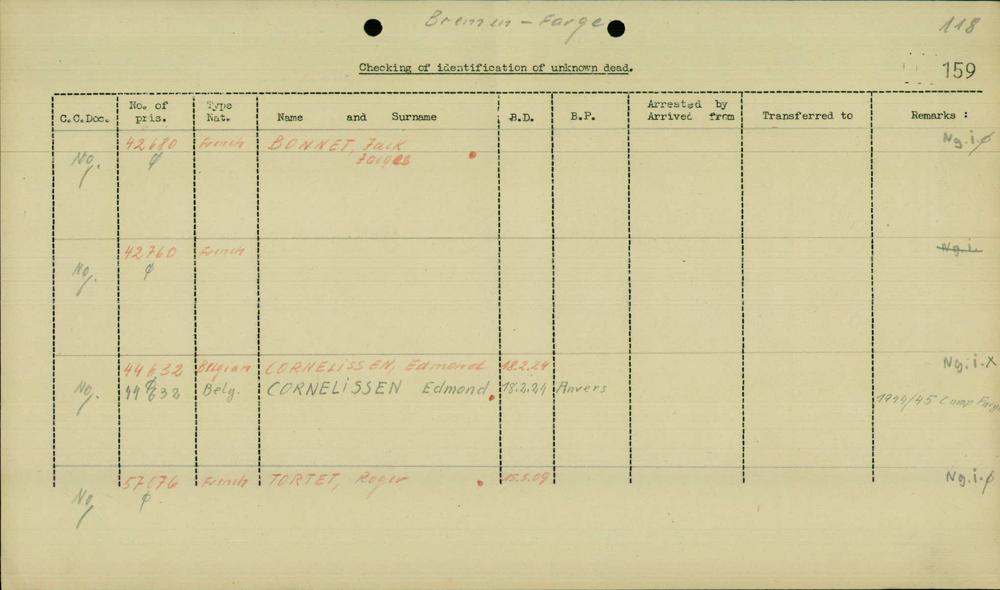 Bremen - Farge
118
Checking of identification of unknown dead.
159
C.C.Doc. No. of pris. Type Nat. Name and Surname B.D. B.P. Arrested by Arrived from Transferred to Remarks :
Ng. 42680 French BONNET, Jack Ng.i.ø
ø Farges
42760 French Ng.i.
Ng. ø
44632 Belgian CORNELISSEN, Edmond 18.2.24 Ng.i.X
ø
Ng. 44632 Belg. CORNELISSEN Edmond 18.2.24 Anvers
1944/45 Camp
57076 French TORTET, Roger 15.5.09 Ng.i.ø
Ng ø